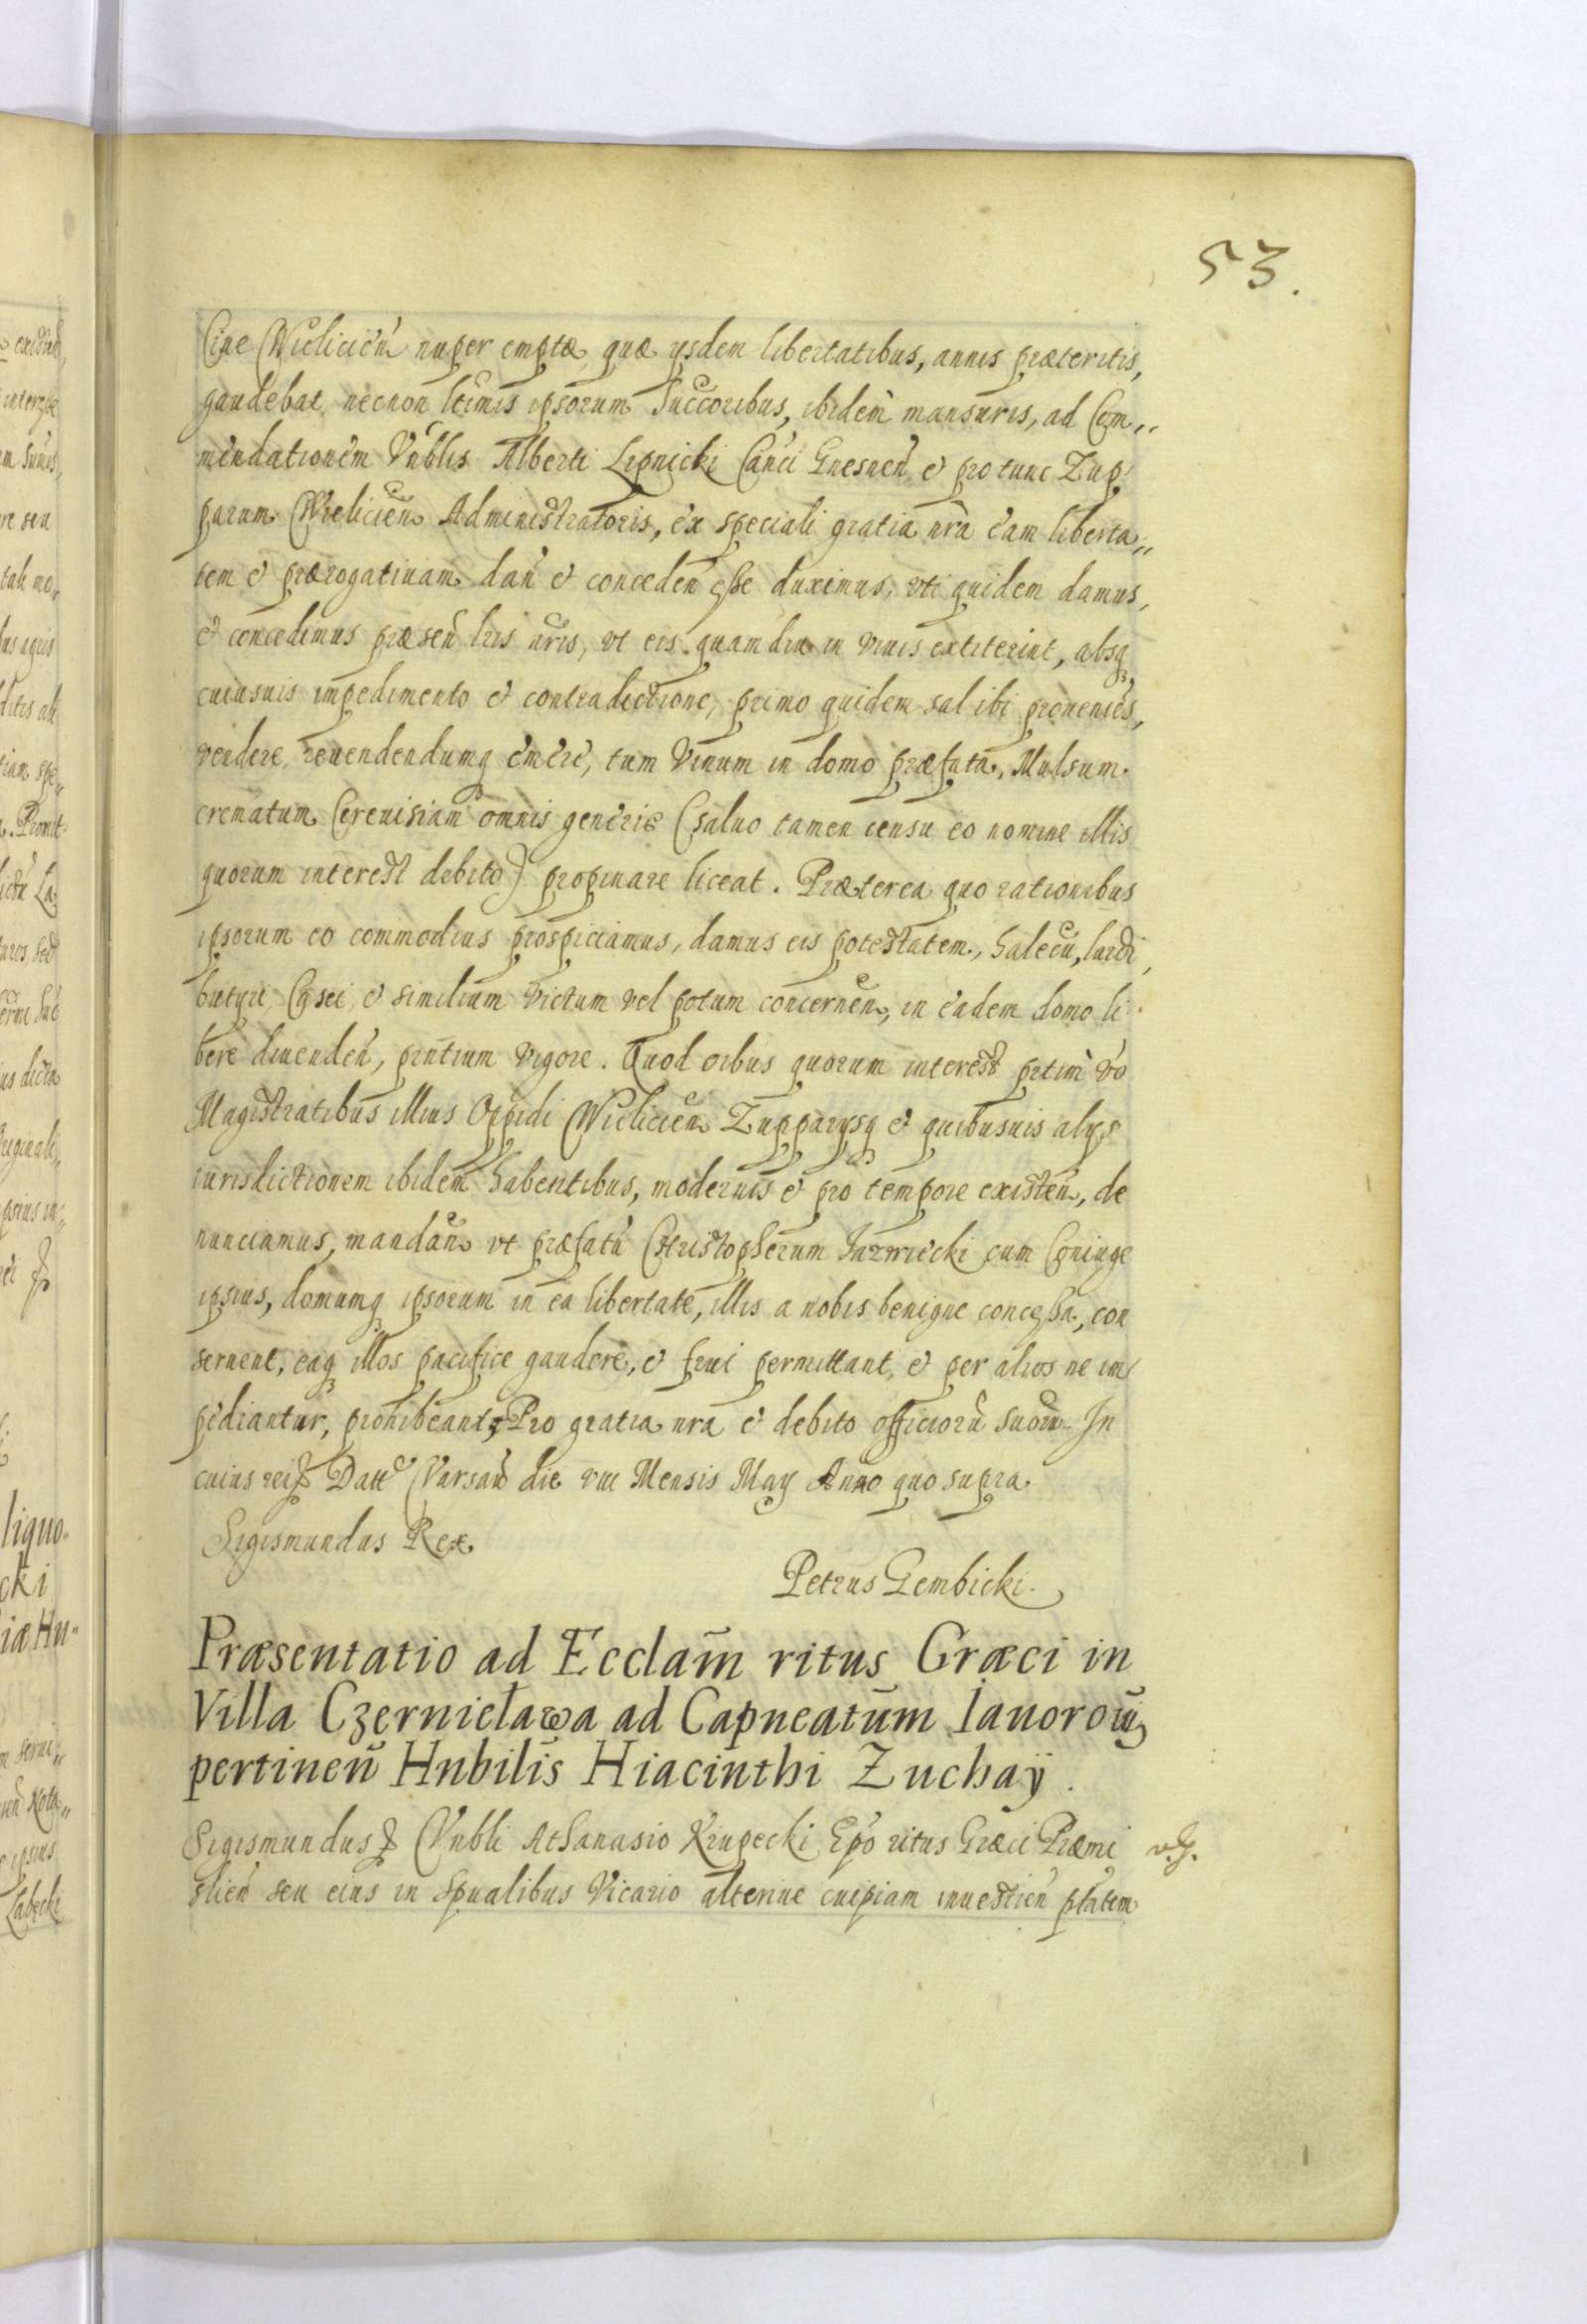 53.
Ciue Wielicień nuper emptæ, quæ ysdem libertatibus, annis præteritis,
gaudebat, necnon ltimis ipsorum Succoribus, ibidem mansuris, ad Com,,
mendationem Vnblis Alberti Lipnicki Canci Gnesneń & pro tunc Zup
parum Wielicień Administratoris, ex speciali gratia nra eam liberta,,
tem & prærogatiuam dań & conceden esse duximus, vti quidem damus,
& concedimus præseń lris nris, vt eis quam diu in viuis extiterint, absq
cuiusuis impedimento & contradictione, primo quidem sal ibi prouenies,
vendere, reuendendumq emere, tum Vinum in domo præfata, Mulsum
crematum Cereuisiam omnis generis (saluo tamen censu eo nomine illis
quorum interest debito) propinare liceat. Præterea quo rationibus
ipsorum eo commodius prospiciamus, damus eis potestatem, halecu, lardi,
butyri, Casei, & similium victum vel potum concerneń, in eadem domo li
bere diuendeń, pntium vigore. Quod oibus quorum interest prtim vo
Magistratibus illius Oppidi Wielicień Zupparysq & quibusuis alys
iurisdictionem ibidem habentibus, modernis & pro tempore existeń, de
nunciamus, mandań vt præfatu Christopherum Jazwiecki cum Coniuge
ipsius, domumq ipsorum in ea libertate, illis a nobis benigne concessa, con
seruent, eaq illos pacifice gaudere, & frui permittant, & per alios ne im
pediantur, prohibeant, Pro gratia nra & debito officioru suoru. In
cuius rei Datt Varsań die VIII Mensis May Anno quo supra
Sigismundus Rex.
Petrus Gembicki.
Præsentatio ad Ecclam ritus Græci in
Villa Czernielawa ad Capneatum Iauorow
pertineń Hnbilis Hiacinthi Zuchaÿ.
Sigismundus Vnbli Athanasio Krupecki Epo ritus Græci Præmi
slień seu eius in Spualibus Vicario alteriue cuipiam inuestień ptatem